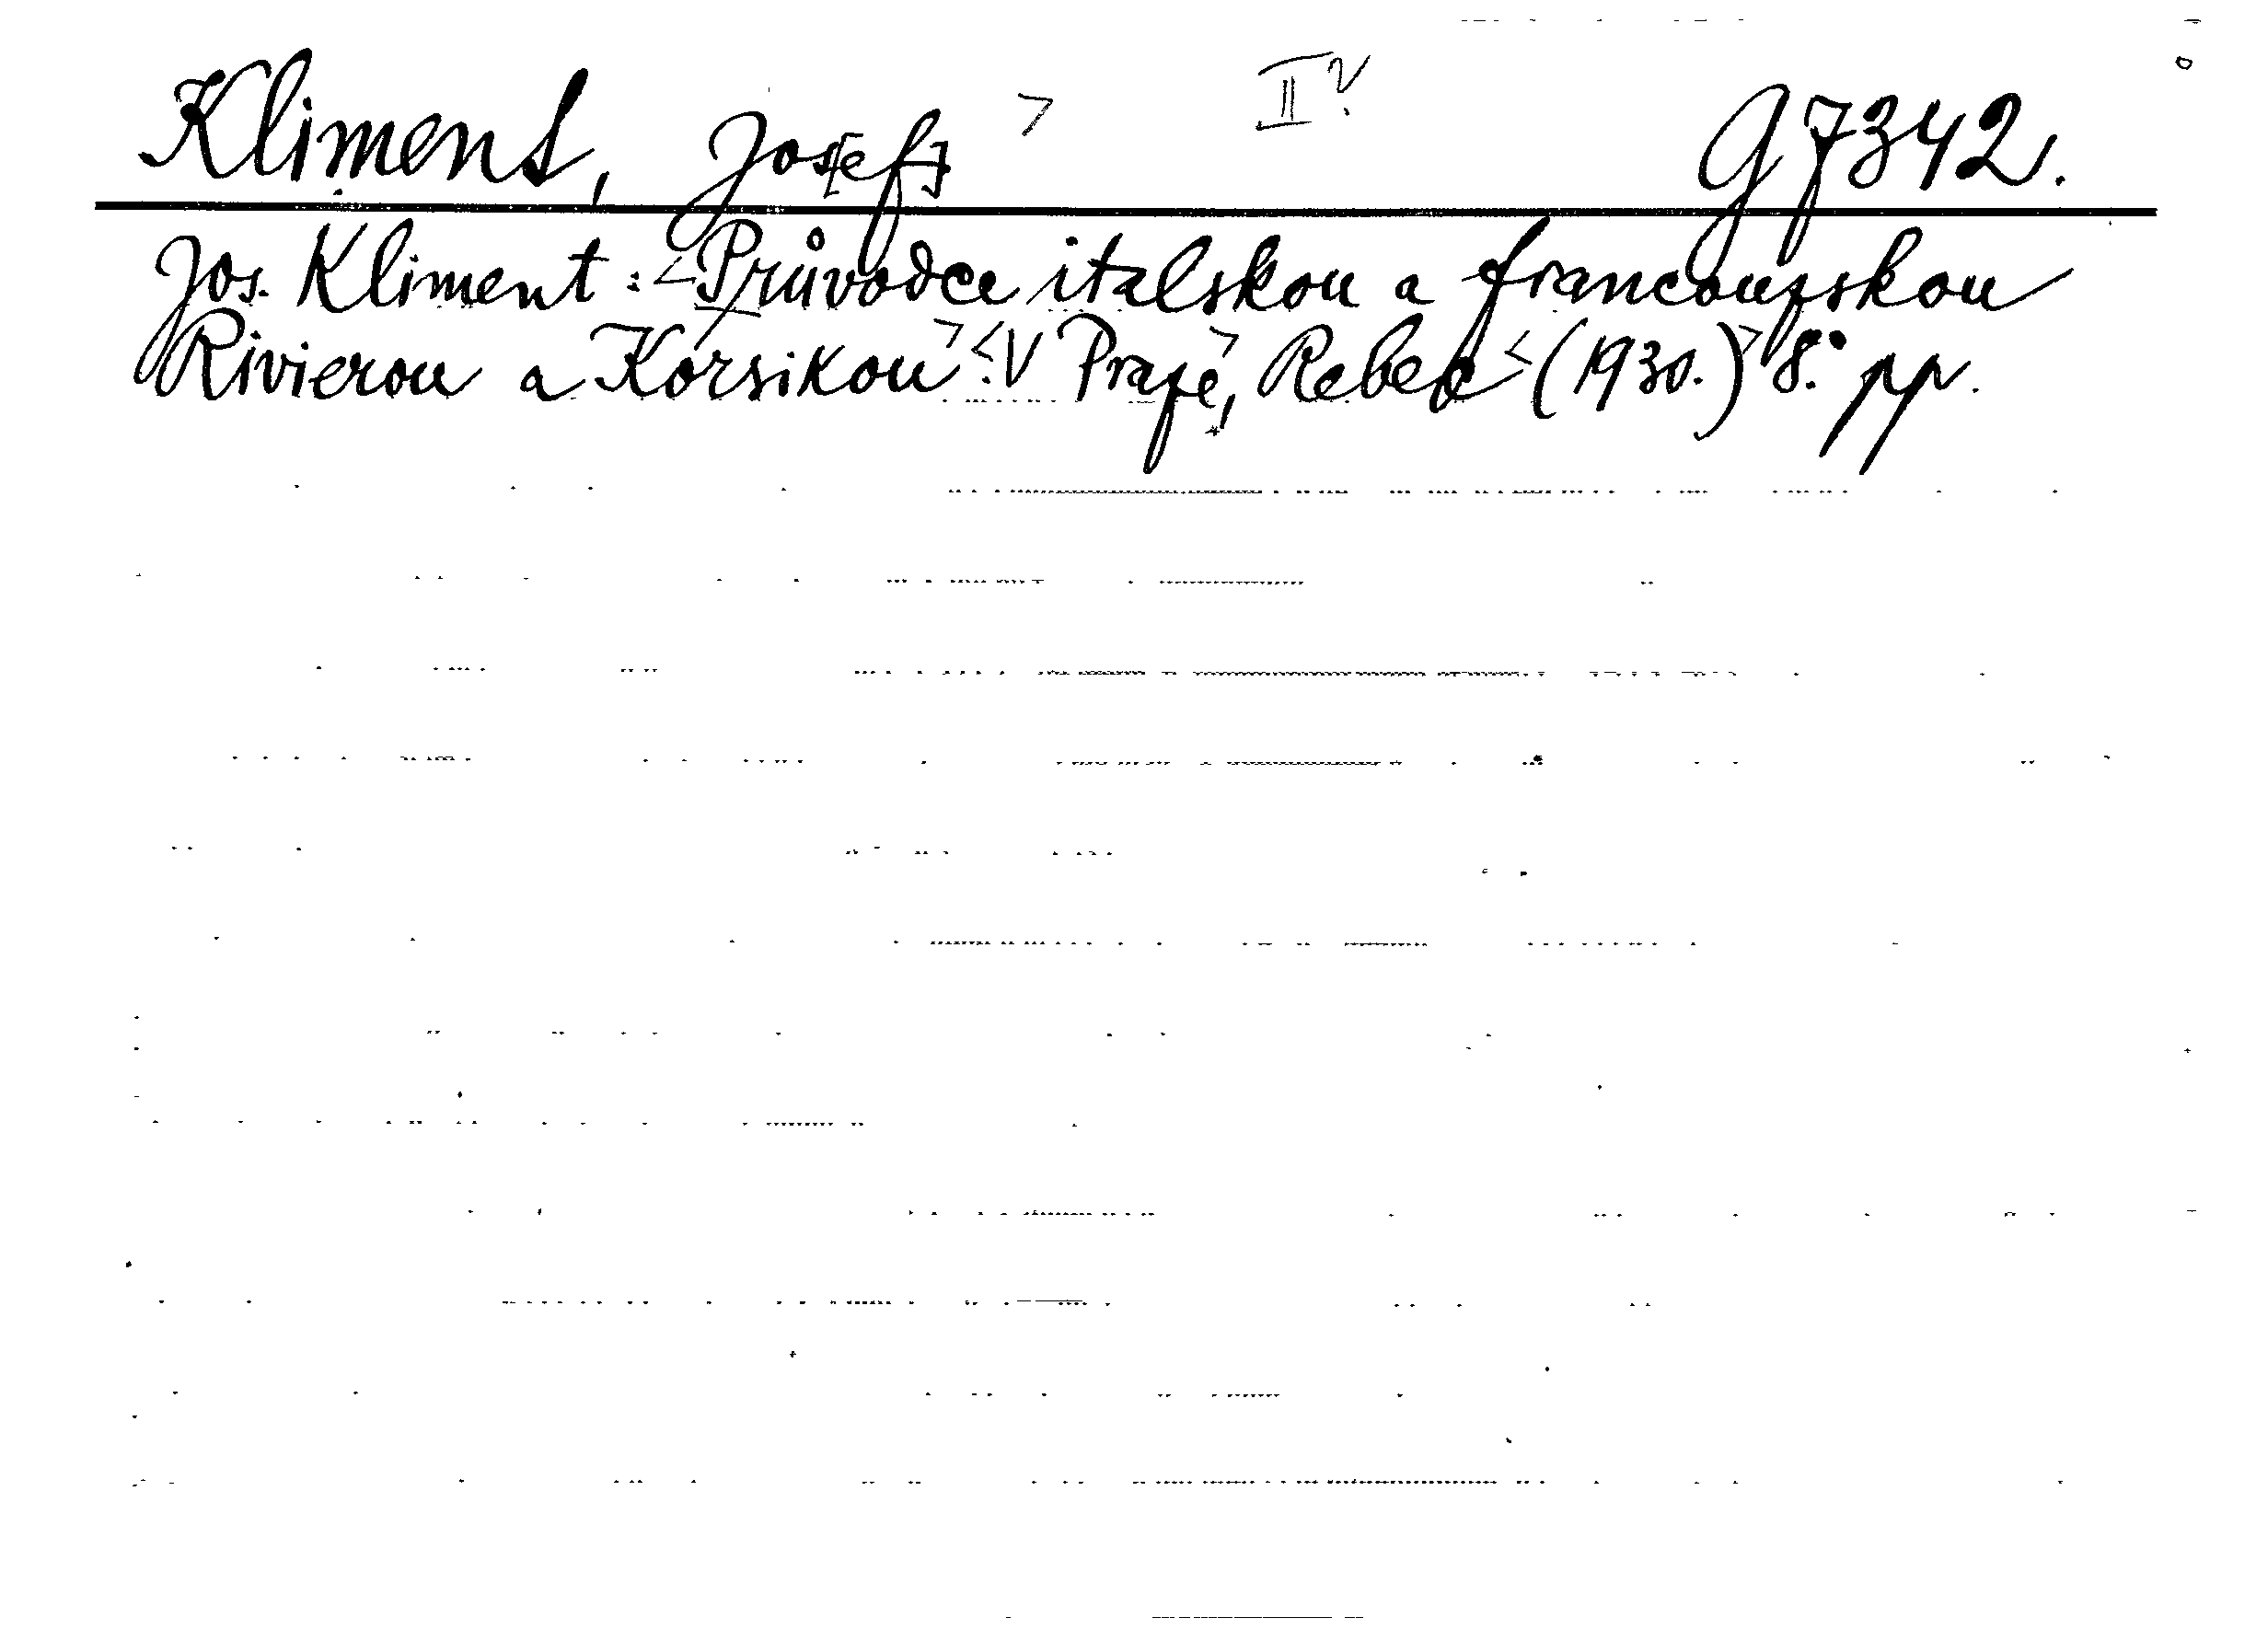 Kliment, Jos[ef] > II? G 7342.
Jos. Kliment: <Průvodce italskou a francouzskou
Rivierou a Korsikou> <.V Praze>, Rebec <(1930.)> 8.° pp.